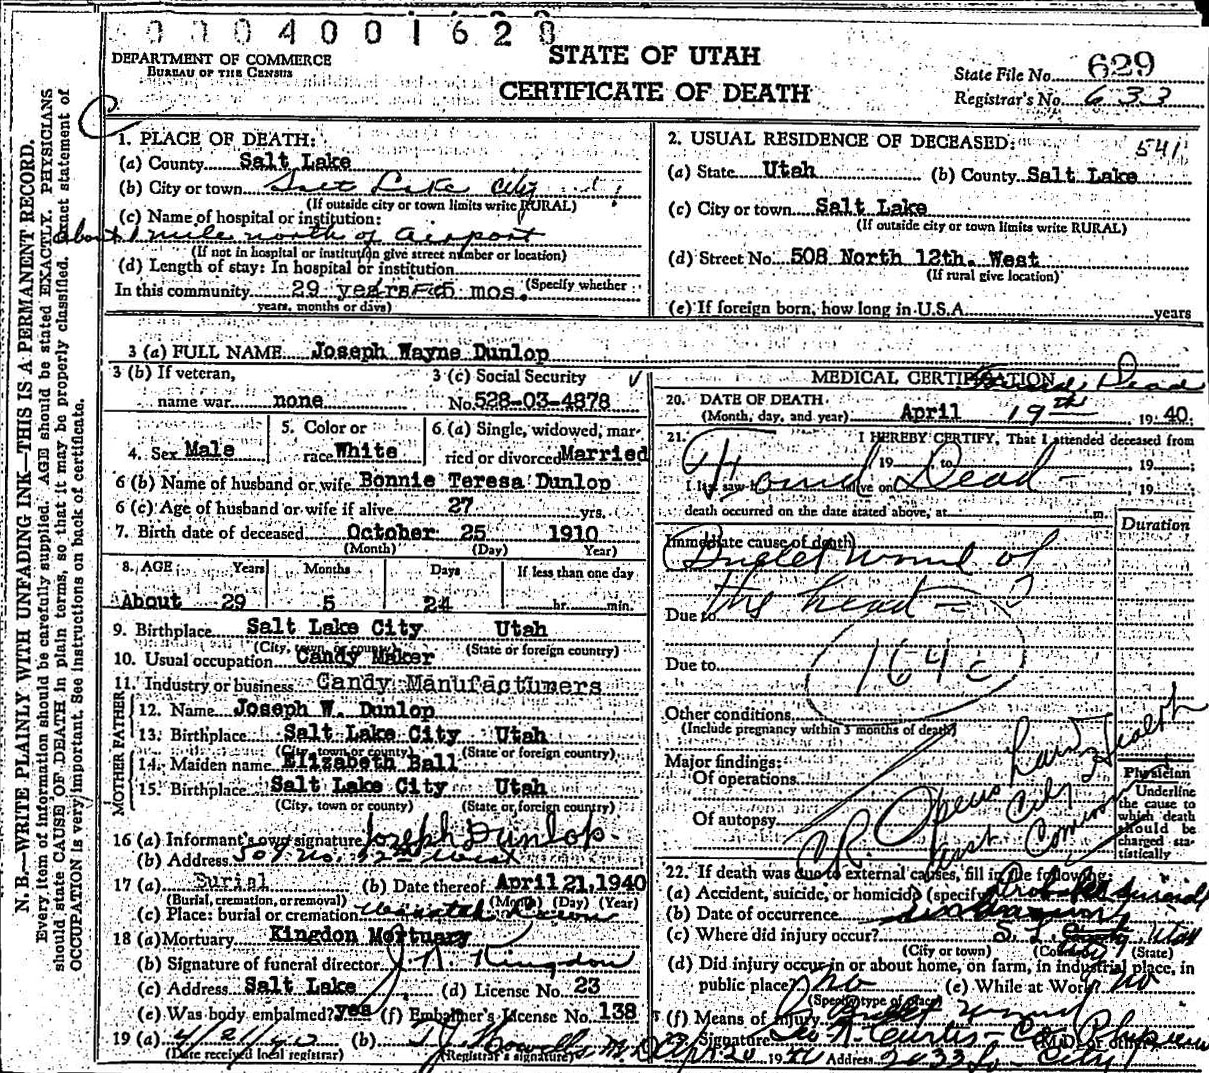 0 0 0 4 0 0 1 6 2 8
DEPARTMENT OF COMMERCE
BUREAU OF THE CENSUS
STATE OF UTAH
CERTIFICATE OF DEATH
State File No. 629
Registrar's No. 633
N. B.—WRITE PLAINLY WITH UNFADING INK—THIS IS A PERMANENT RECORD.
Every item of information should be carefully supplied. AGE should be stated EXACTLY. PHYSICIANS
should state CAUSE OF DEATH in plain terms, so that it may be properly classified. Exact statement of
OCCUPATION is very important. See instructions on back of certificate.
1. PLACE OF DEATH:
(a) County Salt Lake
(b) City or town Salt Lake City
(If outside city or town limits write RURAL)
(c) Name of hospital or institution:
about 1 mile north of airport
(If not in hospital or institution give street number or location)
(d) Length of stay: In hospital or institution
In this community 29 years 5 mos. (Specify whether
years, months or days)
2. USUAL RESIDENCE OF DECEASED: 541
(a) State Utah (b) County Salt Lake
(c) City or town Salt Lake
(If outside city or town limits write RURAL)
(d) Street No. 508 North 12th. West
(If rural give location)
(e) If foreign born, how long in U.S.A. years
3 (a) FULL NAME Joseph Wayne Dunlop
3 (b) If veteran,
name war none
3 (c) Social Security
No. 528-03-4878
4. Sex Male
5. Color or
race White
6. (a) Single, widowed, mar-
ried or divorced Married
6 (b) Name of husband or wife Bonnie Teresa Dunlop
6 (c) Age of husband or wife if alive 27 yrs.
7. Birth date of deceased October 25 1910
(Month) (Day) Year)
8. AGE Years Months Days If less than one day
About 29 5 24 hr. min.
9. Birthplace Salt Lake City Utah
(City, town, or county) (State or foreign country)
10. Usual occupation Candy Maker
11. Industry or business Candy Manufacturers
FATHER
12. Name Joseph W. Dunlop
13. Birthplace Salt Lake City Utah
(City, town or county) (State or foreign country)
MOTHER
14. Maiden name Elizabeth Ball
15. Birthplace Salt Lake City Utah
(City, town or county) (State or foreign country)
16 (a) Informant's own signature Joseph Dunlop
(b) Address No. 12th West
17 (a) Burial (b) Date thereof April 21, 1940
(Burial, cremation, or removal) (Month) (Day) (Year)
(c) Place: burial or cremation Wasatch Lawn
18 (a) Mortuary Kingdon Mortuary
(b) Signature of funeral director J R Kingdon
(c) Address Salt Lake (d) License No. 23
(e) Was body embalmed? yes (f) Embalmer's License No. 138
19 (a) 4/21/40 (b) T J Howells M.D.
(Date received local registrar) (Registrar's signature)
MEDICAL CERTIFICATION Found Dead
20. DATE OF DEATH
(Month, day, and year) April 19th 1940.
21. I HEREBY CERTIFY, That I attended deceased from
19 , to , 19
I last saw h alive on , 19
Found Dead -
death occurred on the date stated above, at m.
Duration
Immediate cause of death
Bullet wound of
the head - ?
Due to
Due to
164c
Other conditions
(Include pregnancy within 3 months of death)
Major findings:
Of operations
Of autopsy
Physician
Underline
the cause to
which death
should be
charged sta-
tistically
Health
City
22. If death was due to external causes, fill in the following:
(a) Accident, suicide, or homicide (specify) Probable Suicide
(b) Date of occurrence unknown
(c) Where did injury occur? S. L. County City Utah
(City or town) (County) (State)
(d) Did injury occur in or about home, on farm, in industrial place, in
public place? no (e) While at Work? no
(Specify type of place)
(f) Means of injury Bullet Wound
23. Signature Geo N. Curtis - Co. Physician
(M.D. or other)
Apr 20 1940 Address 2033 So - City